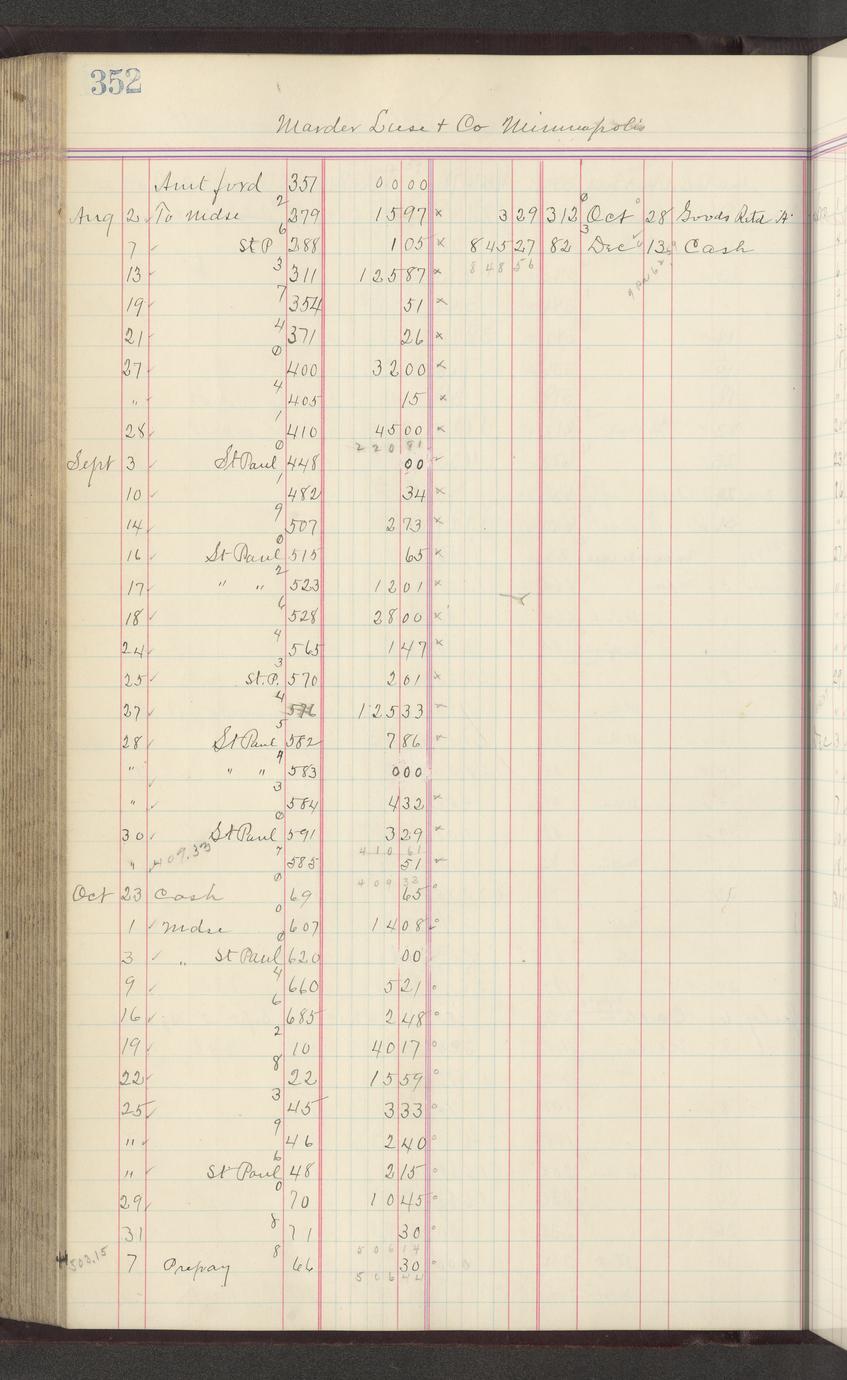 352
Marder Luse & Co Minneapolis
Amt ford 351 00 00
Aug 2 To Mdse 2 279 15 97 x 3 29 312 0 Oct 28 Goods Retd
7 St P 6 288 1 05 x 845 27 82 3 Dec 13 Cash
13 3 311 125 87 x 848 56
19 7 354 51 x
21 4 371 26 x
27 0 400 32 00 x
" 4 405 15 x
28 1 410 45 00 x
220 81
Sept 3 St Paul 0 448 00
10 1 482 34 x
14 9 507 2 73 x
16 St Paul 0 515 65 x
17 " " 2 523 12 01 x
18 6 528 28 00 x
24 4 565 1 47 x
25 St. P. 3 570 2 01 x
27 4 576 125 33
28 St Paul 5 582 7 86
" " " 9 583 0 00
" 3 584 4 32 x
30 St Paul 0 591 3 29 x
410 61
" 409.33 7 585 51
409 33
Oct 23 Cash 0 69 65
1 Mdse 0 607 14 08
3 " St Paul 0 620 00
9 4 660 5 21
16 6 685 2 48
19 2 10 40 17
22 8 22 15 59
25 3 45 3 33
" 9 46 2 40
" St Paul 6 48 2 15
29 0 70 10 45
31 8 71 30
506 14
503.15 7 Prepay 8 66 30
506 44